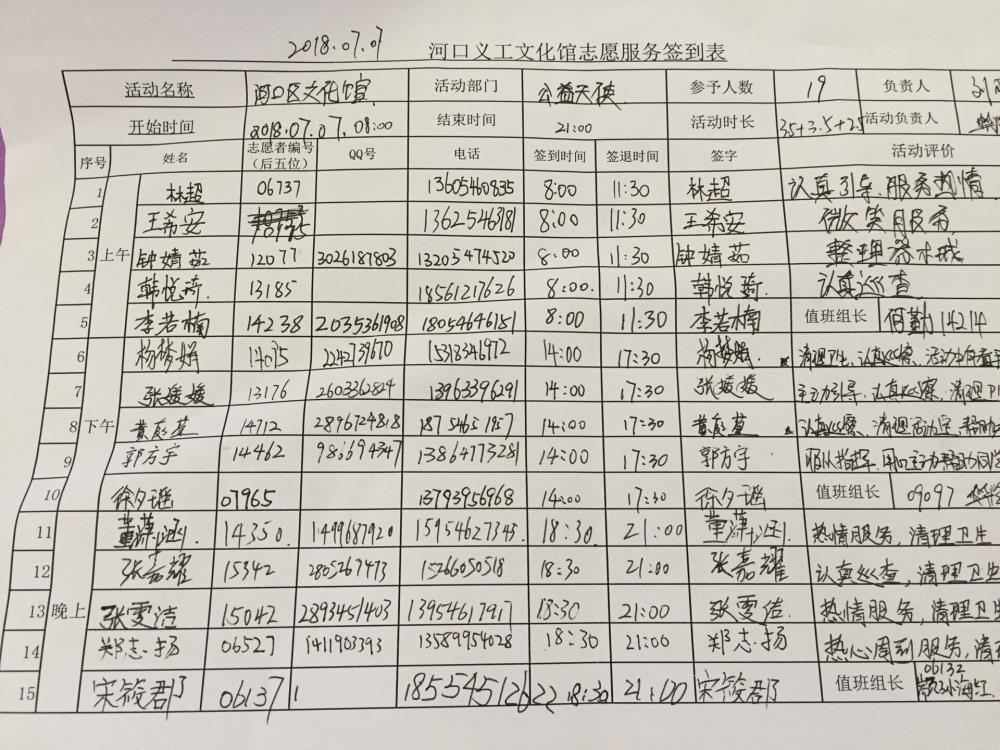 2018.07.07 河口义工文化馆志愿服务签到表
活动名称 河口区文化馆 活动部门 公益天使 参予人数 19 负责人
开始时间 2018.07.07. 08:00 结束时间 21:00 活动时长 3.5+3.5+2.5 活动负责人
序号 姓名 志愿者编号（后五位） QQ号 电话 签到时间 签退时间 签字 活动评价
上午
1 林超 06737 13605460835 8:00 11:30 林超 认真引导.服务热情
2 王希安 13625463181 8:00 11:30 王希安 微笑服务
3 钟婧茹 12077 3026187803 13205474520 8:00 11:30 钟婧茹 整理
4 韩悦琦. 13185 18561217626 8:00. 11:30 韩悦琦. 认真巡查
5 李若楠 14238 2035361908 18054646181 8:00 11:30 李若楠 值班组长 14214
下午
6 杨梦娟 14075 2242739670 15318346972 14:00 17:30 杨梦娟. 清理卫生、认真巡察、
7 张媛媛 13176 2603362824 13963396291 14:00 17:30 张媛媛 主动引导、认真巡察、清理卫
8 14712 2896724818 14:00 17:30 认真巡察、清理活动室、
9 郭方宇 14462 13864773281 14:00 17:30 郭方宇 服从指挥、
10 徐夕瑶 07965 13793956968 14:00 17:30 徐夕瑶 值班组长 09097
晚上
11 14350. 1499687920 15954627345. 18:30. 21:00 热情服务，清理卫生
12 张嘉耀 15342 2805267473 15266050518 18:30 21:00 张嘉耀 认真巡查，清理卫生
13 张雯洁 15042 2893451403 13954617917 18:30 21:00 张雯洁. 热情服务，清理卫生
14 郑志扬 06527 1411903393 13589954028 18:30 21:00 郑志扬 热心周到服务，清
15 宋筱君 06137 18554512622 18:30 21:00 宋筱君 值班组长 06132 孙海江